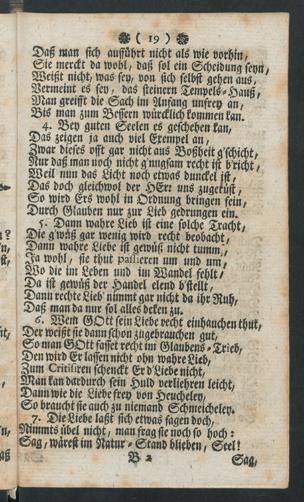 ( 19 )
Daß man sich aufführt nicht als wie vorhin,
Sie merckt da wohl, daß sol ein Scheidung seyn,
Weißt nicht, was sey, von sich selbst gehen aus,
Vermeint es sey, das steinern Tempels-Hauß,
Man greifft die Sach im Anfang unfrey an,
Bis man zum Bessern würcklich kommen kan.
4. Bey guten Seelen es geschehen kan,
Das zeigen ja auch viel Exempel an,
Zwar dieses offt gar nicht aus Boßheit g'schicht,
Nur daß man noch nicht g'nugsam recht ist b'richt,
Weil nun das Licht noch etwas dunckel ist,
Das doch gleichwol der HErr uns zugerüst,
So wird Ers wohl in Ordnung bringen fein,
Durch Glauben nur zur Lieb gedrungen ein.
5. Dann wahre Lieb ist eine solche Tracht,
Die g'wöß gar wenig wird recht beobacht,
Dann wahre Liebe ist gewüß nicht tumm,
Ja wohl, sie thut passieren um und um,
Wo die im Leben und im Wandel fehlt,
Da ist gewüß der Handel elend b'stellt,
Dann rechte Lieb' nimmt gar nicht da ihr Ruh,
Daß man da nur sol alles decken zu.
6. Wem GOtt sein Liebe recht einhauchen thut,
Der weißt sie dann schon zugebrauchen gut,
So man GOtt fasset recht im Glaubens-Trieb,
Den wird Er lassen nicht ohn wahre Lieb,
Zum Critisiren schenckt Er d'Liebe nicht,
Man kan dardurch sein Huld verliehren leicht,
Dann wie die Liebe frey von Heucheley,
So braucht sie auch zu niemand Schmeicheley.
7. Die Liebe laßt sich etwas sagen doch,
Nimmts übel nicht, man frag sie noch so hoch:
Sag, wärest im Natur-Stand blieben, Seel!
B 2
Sag,